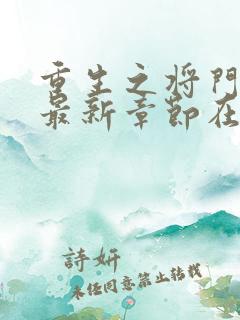 重生之将門
最新章節在
詩妍
未经同意禁止转载